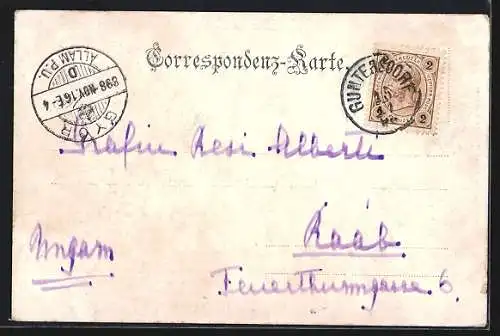 GYŐR
898 NOV. 16 E-4
D
ÁLLAM P.U.
Correspondenz-Karte.
GUNTERSDORF
2 2
Gräfin Resi Alberti
Raab.
Ungarn
Feuerthurmgasse 6.